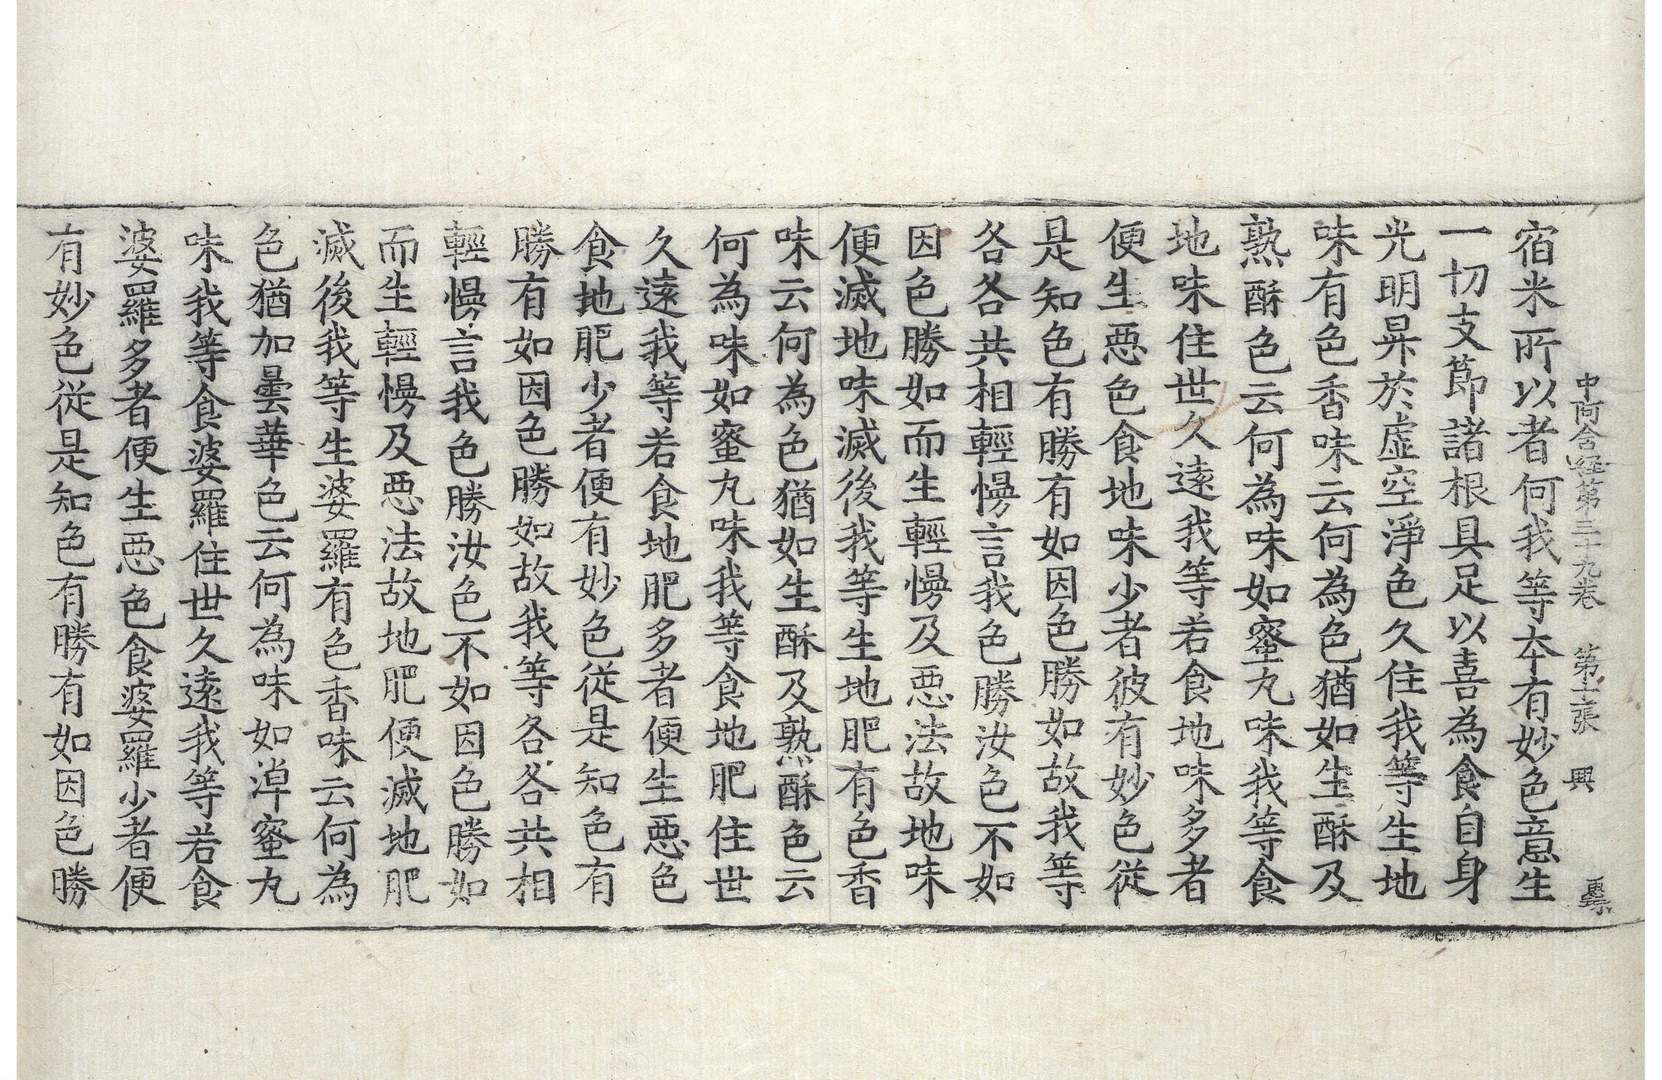 中阿含経第三十九卷 第 張 興
宿米所以者何我等本有妙色意生
一切支節諸根具足以喜為食自身
光明昇於虛空淨色久住我等生地
味有色香味云何為色猶如生酥及
熟酥色云何為味如蜜丸味我等食
地味住世久遠我等若食地味多者
便生惡色食地味少者彼有妙色從
是知色有勝有如因色勝如故我等
各各共相輕慢言我色勝汝色不如
因色勝如而生輕慢及惡法故地味
便滅地味滅後我等生地肥有色香
味云何為色猶如生酥及熟酥色云
何為味如蜜丸味我等食地肥住世
久遠我等若食地肥多者便生惡色
食地肥少者便有妙色從是知色有
勝有如因色勝如故我等各各共相
輕慢言我色勝汝色不如因色勝如
而生輕慢及惡法故地肥便滅地肥
滅後我等生婆羅有色香味云何為
色猶加曇華色云何為味如淖蜜丸
味我等食婆羅住世久遠我等若食
婆羅多者便生惡色食婆羅少者便
有妙色從是知色有勝有如因色勝